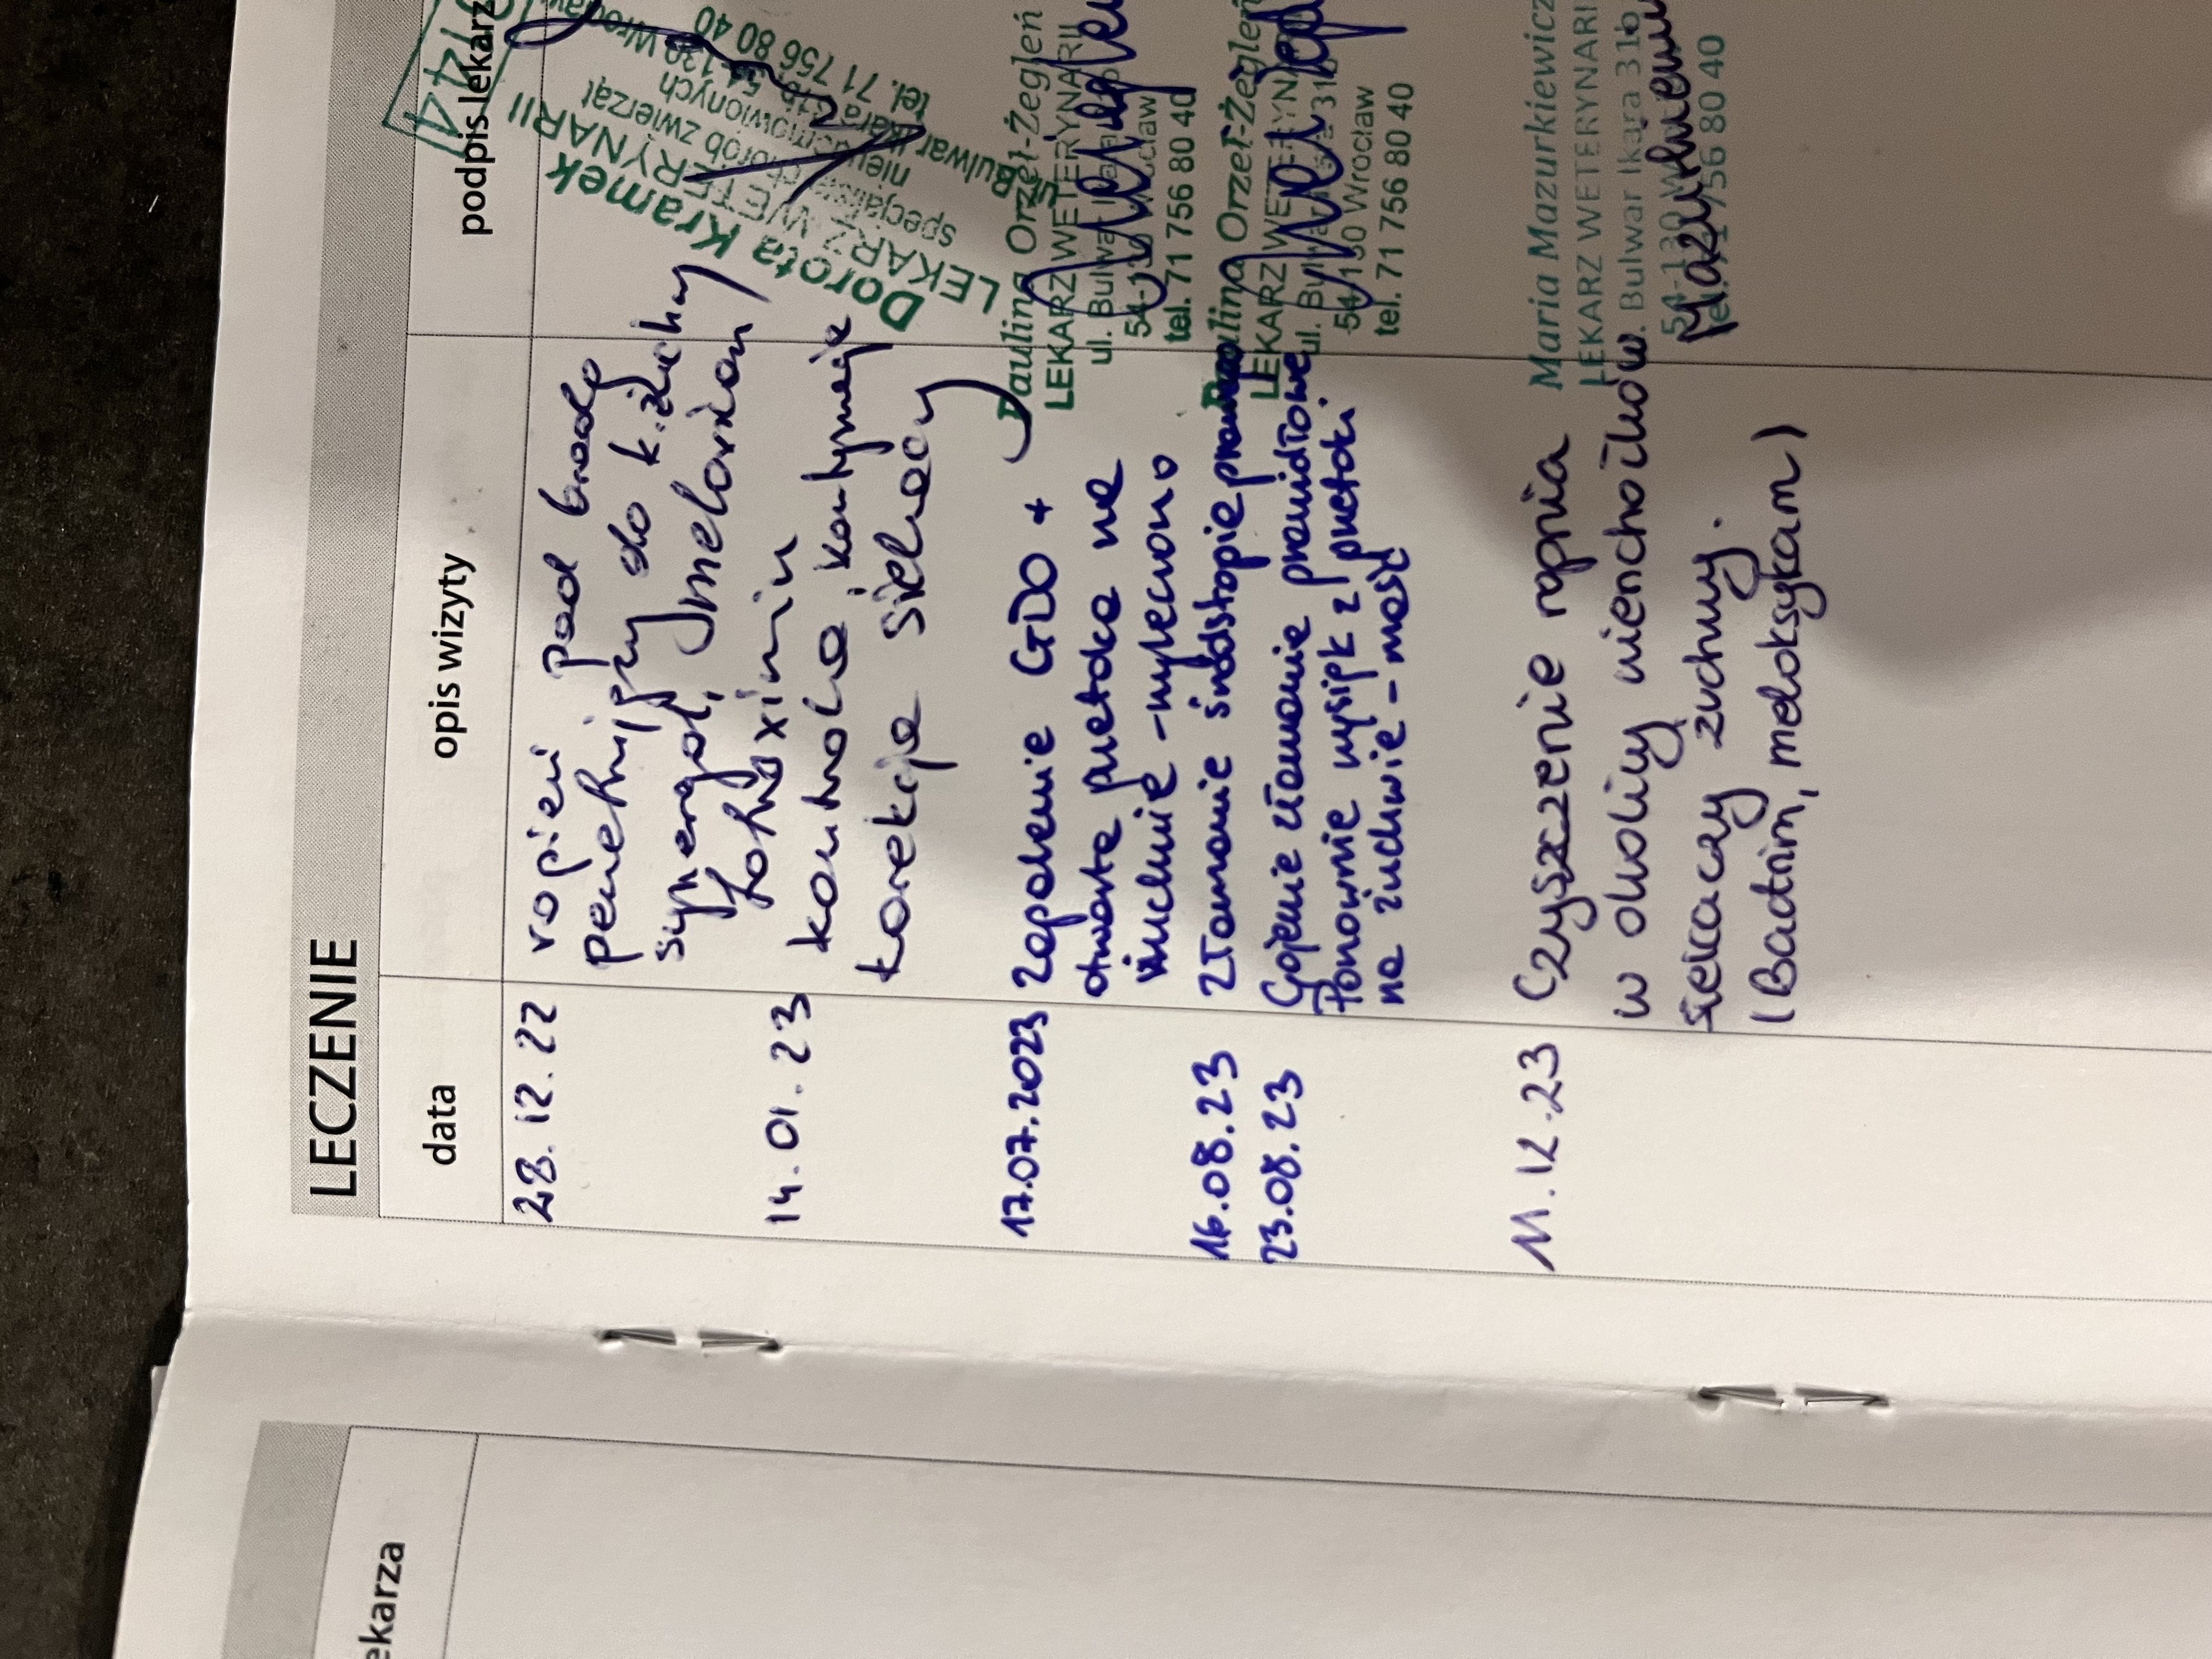 LECZENIE
data
opis wizyty
podpis lekarz
28.12.22
ropień pod brodą
penetrujący do k. żuchwy
synergal, melovian
14.01.23
kontrola, kontynuacja
korekcja siekaczy
Dorota Kramek
LEKARZ WETERYNARII
specjalista chorób zwierząt
nieudomowionych
Bulwar Ikara 31b, 54-130 Wrocław
tel. 71 756 80 40
17.07.2023
Zapalenie GDO +
otwarta przetoka na
żuchwie - wyleczono
Paulina Orzeł-Żegleń
LEKARZ WETERYNARII
ul. Bulwar
54-130 Wrocław
tel. 71 756 80 40
16.08.23
Złamanie śródstopie
23.08.23
Gojenie złamanie prawidłowe
Ponownie wysięk z przetoki
na żuchwie - maść
Paulina Orzeł-Żegleń
LEKARZ WETERYNARII
ul. Bulwar 31b
54-130 Wrocław
tel. 71 756 80 40
11.12.23
Czyszczenie ropnia
w okolicy wierzchołków
siekaczy żuchwy.
(Bactrim, meloksykam)
Maria Mazurkiewicz
LEKARZ WETERYNARII
Bulwar Ikara 31b
54-130
tel. 71 756 80 40
ekarza